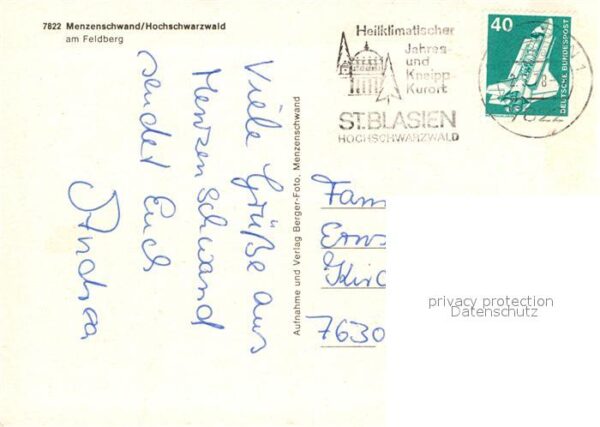 7822 Menzenschwand/Hochschwarzwald
am Feldberg
Viele Grüße aus
Menzenschwand
sendet Euch
Andrea
Aufnahme und Verlag Berger-Foto, Menzenschwand
Heilklimatischer
Jahres-
und
Kneipp-
Kurort
ST.BLASIEN
HOCHSCHWARZWALD
40
DEUTSCHE BUNDESPOST
7822
1
Fam
Erw
Kirc
7630
privacy protection
Datenschutz